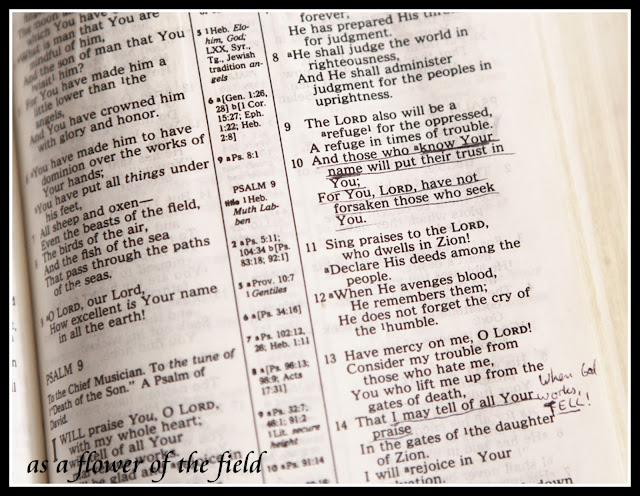 The moon
which You have
What is man that You are
mindful of him,
And the son of man that You
visit him?
For You have made him a
little lower than 1the
angels,
And You have crowned him
with glory and honor.
You have made him to have
dominion over the works of
Your hands;
You have put all things under
his feet,
All sheep and oxen—
Even the beasts of the field,
The birds of the air,
And the fish of the sea
That pass through the paths
of the seas.
O LORD, our Lord,
How excellent is Your name
in all the earth!
PSALM 9
To the Chief Musician. To the tune of
"Death of the Son." A Psalm of
David.
I WILL praise You, O LORD,
with my whole heart;
tell of all Your
works.
be glad and rejoice in
5 1 Heb. Elo-
him, God;
LXX, Syr.,
Tg., Jewish
tradition an-
gels
6 a[Gen. 1:26,
28] b[1 Cor.
15:27; Eph.
1:22; Heb.
2:8]
9 a Ps. 8:1
PSALM 9
title 1 Heb.
Muth Lab-
ben
2 a Ps. 5:11;
104:34 b[Ps.
83:18; 92:1]
5 a Prov. 10:7
1 Gentiles
6 a[Ps. 34:16]
7 a Ps. 102:12,
26; Heb. 1:11
8 a[Ps. 96:13;
98:9; Acts
17:31]
9 a Ps. 32:7;
46:1; 91:2
1 Lit. secure
height
10 a Ps. 91:14
forever;
He has prepared His
for judgment.
8 aHe shall judge the world in
righteousness,
And He shall administer
judgment for the peoples in
uprightness.
9 The LORD also will be a
arefuge1 for the oppressed,
A refuge in times of trouble.
10 And those who aknow Your
name will put their trust in
You;
For You, LORD, have not
forsaken those who seek
You.
11 Sing praises to the LORD,
who dwells in Zion!
aDeclare His deeds among the
people.
12 aWhen He avenges blood,
He remembers them;
He does not forget the cry of
the 1humble.
13 Have mercy on me, O LORD!
Consider my trouble from
those who hate me,
You who lift me up from the
gates of death,
14 That I may tell of all Your
praise
In the gates of 1the daughter
of Zion.
I will arejoice in Your
down
When God
works,
TELL!
as a flower of the field